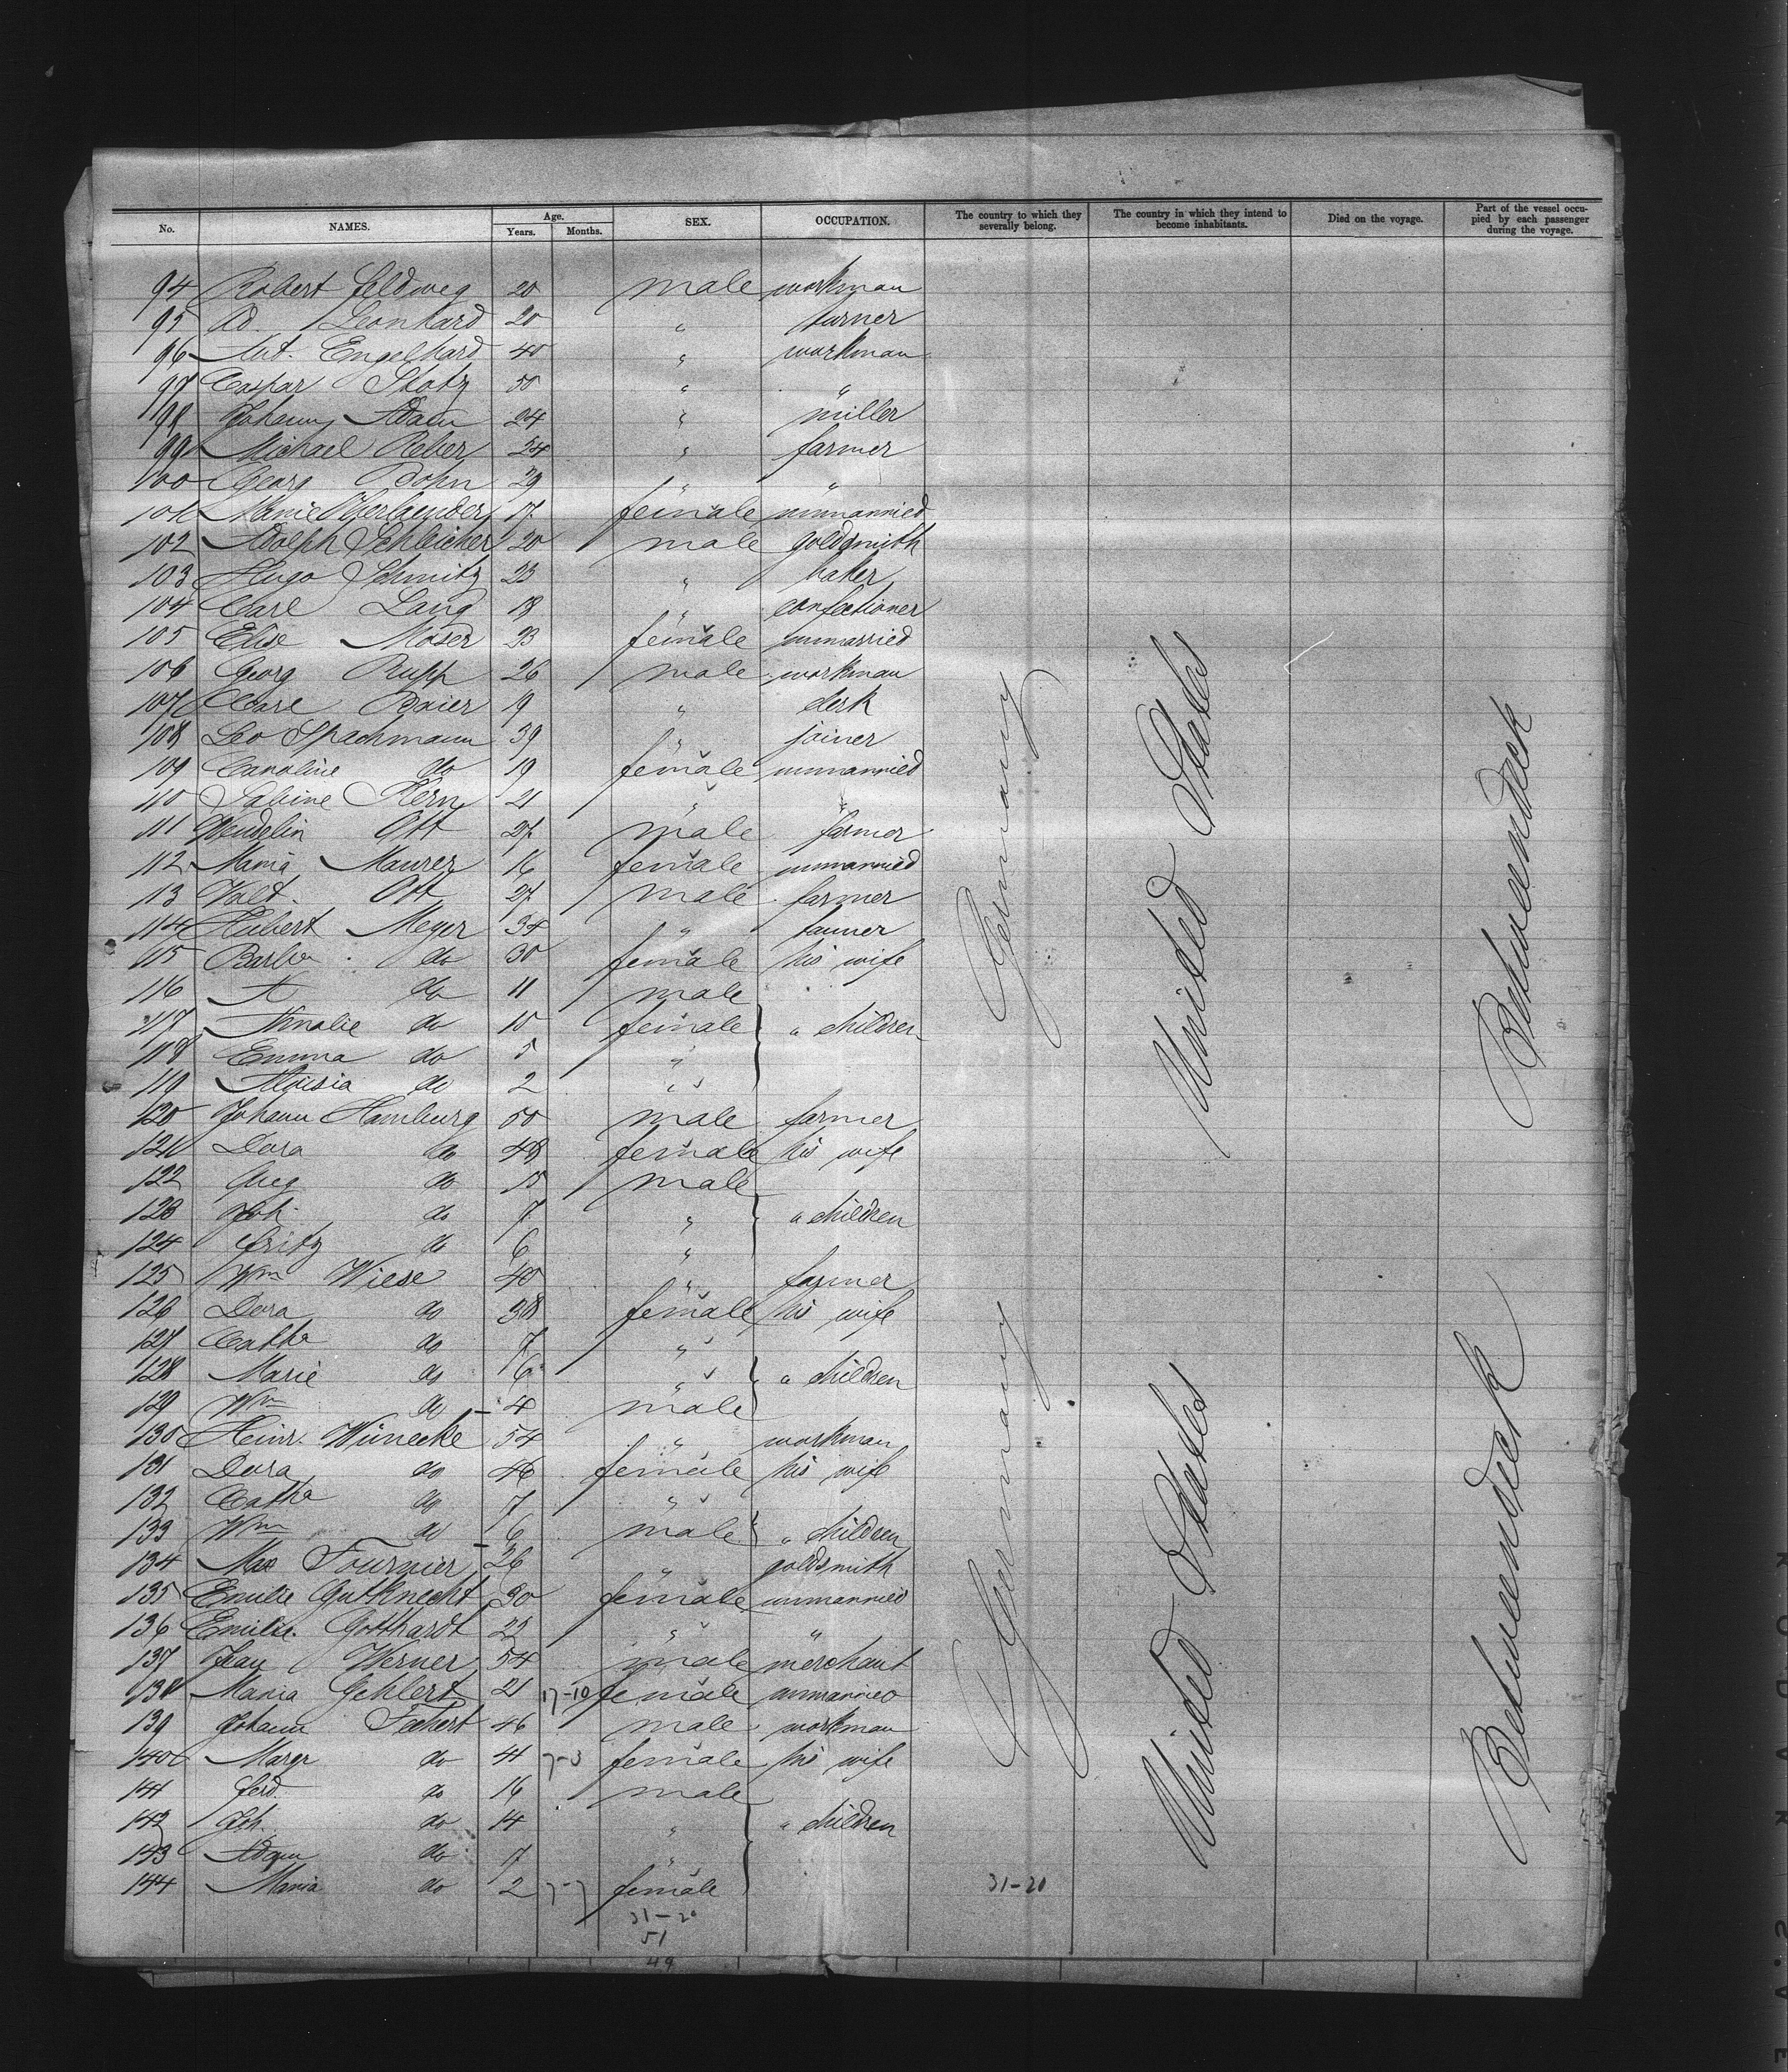 No. NAMES. Age. Years. Months. SEX. OCCUPATION. The country to which they severally belong. The country in which they intend to become inhabitants. Died on the voyage. Part of the vessel occupied by each passenger during the voyage.
94 Robert Feldweg 20 male workman
95 Ad. Leonhard 20 " turner
96 Ant. Engelhard 40 " workman
97 Caspar Stotz 50 " "
98 Johann Adam 24 " miller
99 Michael Reber 24 " farmer
100 Georg Bohn 29 " "
101 Marie 17 female unmarried
102 Adolph Schleicher 20 male goldsmith
103 Hugo Schmitz 23 " baker
104 Carl Lang 18 " confectioner
105 Elise Moser 23 female unmarried
106 Georg Rupp 26 male workman
107 Carl Baier 19 " clerk
108 Leo Spachmann 39 " joiner
109 Caroline do 19 female unmarried
110 Sabine Kern 21 " "
111 Wendelin Ott 27 male farmer
112 Maria Maurer 16 female unmarried
113 Valt. Ott 27 male farmer
114 Hubert Meyer 34 " tanner
115 Barba do 30 female his wife
116 A do 11 male
117 Amalie do 10 female " children
118 Emma do 5 "
119 Aloisia do 2 "
120 Johann Hamburg 50 male farmer
121 Dora do 48 female his wife
122 do 15 male
123 Joh. do 7 " " children
124 Fritz do 6 "
125 Wm Wiese 40 " farmer
126 Dora do 38 female his wife
127 Catha do 7 "
128 Marie do 6 " " children
129 Wm do 4 male
130 Heinr. Wünecke 54 " workman
131 Dora do 46 female his wife
132 Catha do 7 "
133 Wm do 6 male " children
134 Max Fournier 26 " goldsmith
135 Emilie Gutknecht 30 female unmarried
136 Emilie Gotthardt 22 " "
137 Jean Werner 54 male merchant
138 Maria Gehlert 21 17-10 female unmarried
139 Johann Fechert 46 male workman
140 Margr do 41 7-3 female his wife
141 Ferd. do 16 male
142 Joh. do 14 " " children
143 Adam do 7 "
144 Maria do 2 7-7 female
31-20
51
49
31-20
Germany
Germany
United States
United States
Betweendeck
Betweendeck